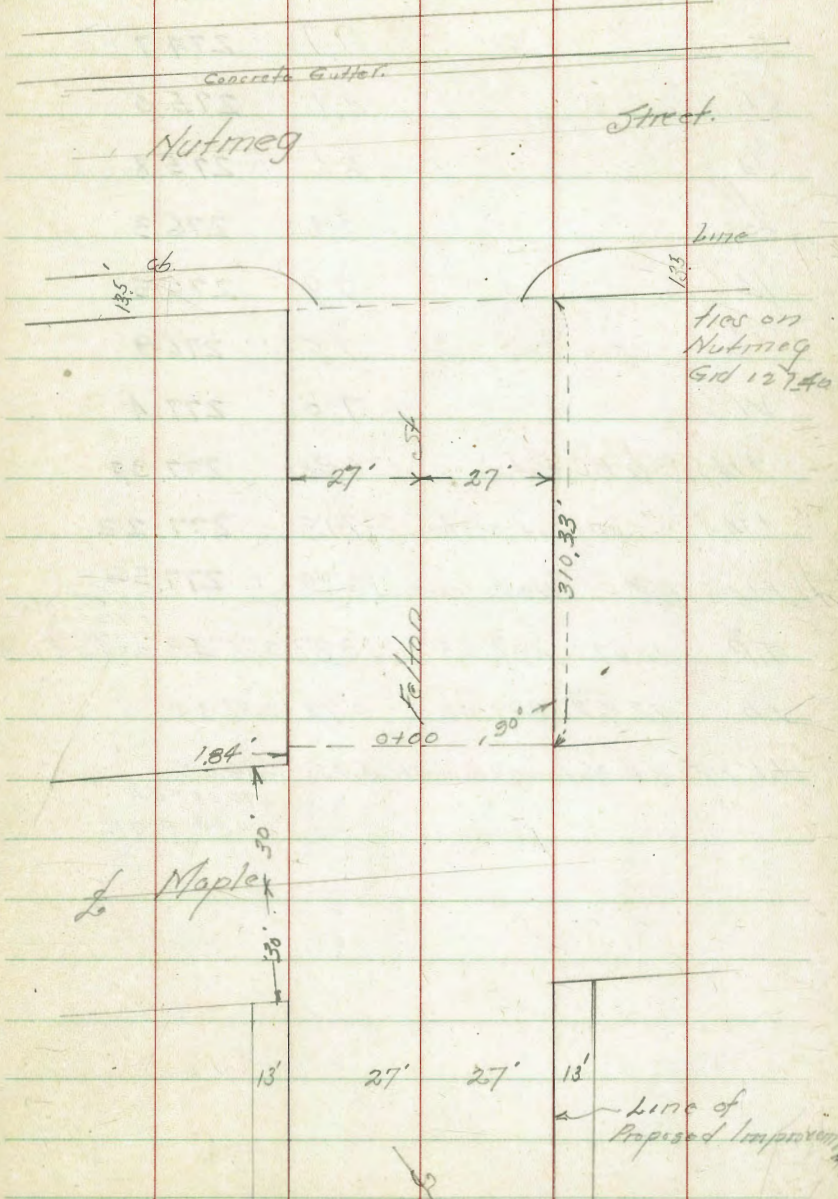 Concrete Gutter.
Nutmeg Street.
Line
cb.
13.5'
13.5
ties on
Nutmeg
Grd
St
27' 27'
310.33'
Felton
0+00 90°
1.84'
30'
℄ Maple
30'
13' 27' 27' 13'
Line of
Proposed Improvem
℄